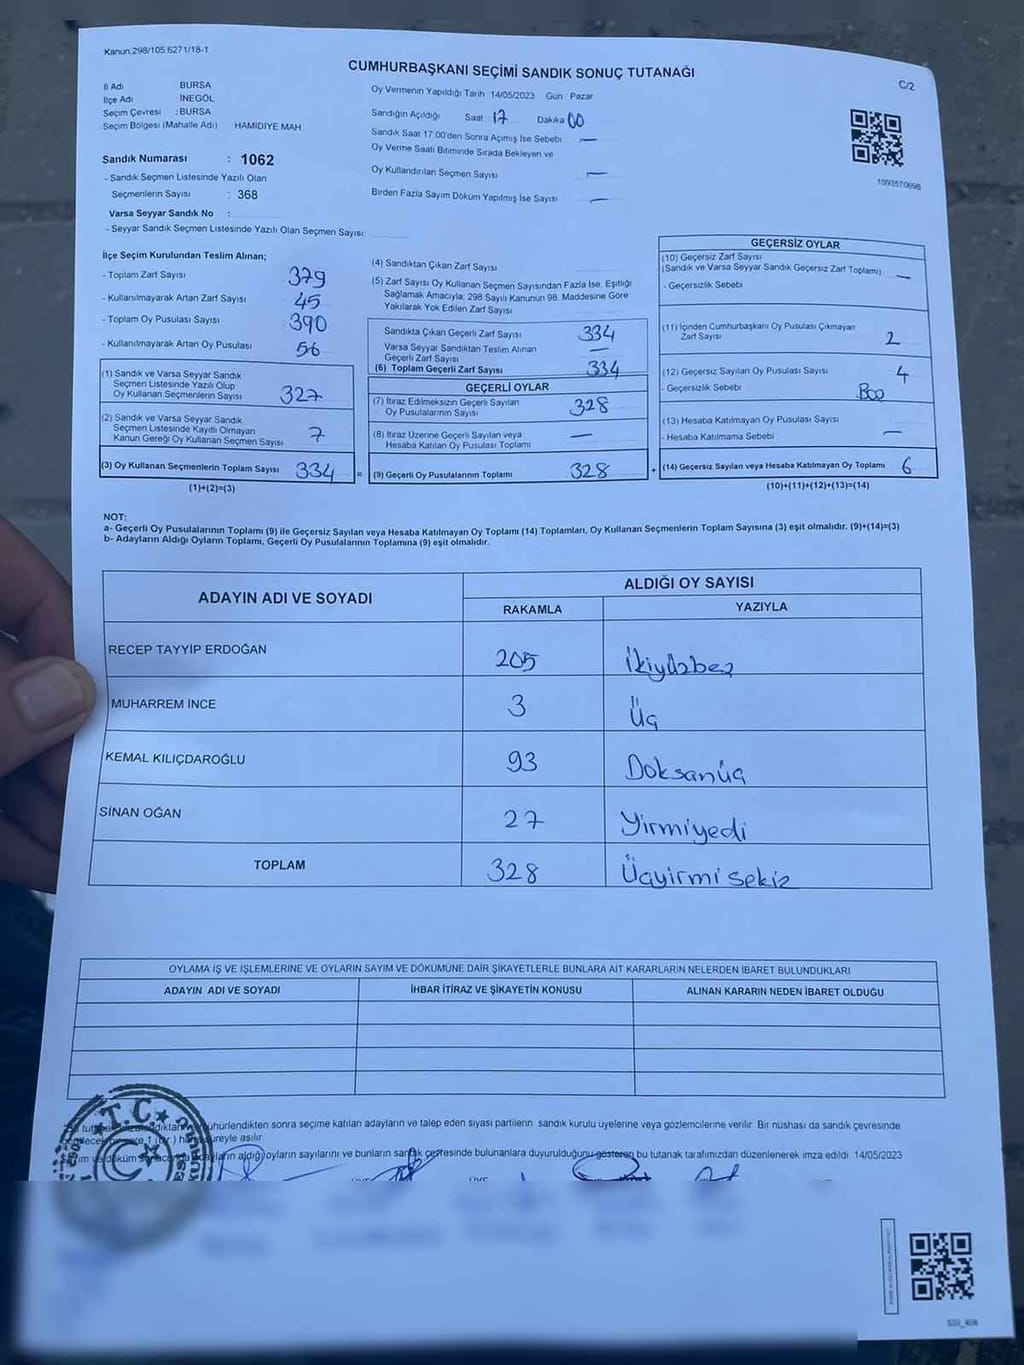 Kanun 298/105 6271/18-1
CUMHURBAŞKANI SEÇİMİ SANDIK SONUÇ TUTANAĞI
C/2
İl Adı BURSA
İlçe Adı İNEGÖL
Seçim Çevresi : BURSA
Seçim Bölgesi (Mahalle Adı) HAMİDİYE MAH.
Sandık Numarası : 1062
- Sandık Seçmen Listesinde Yazılı Olan
Seçmenlerin Sayısı : 368
Varsa Seyyar Sandık No :
- Seyyar Sandık Seçmen Listesinde Yazılı Olan Seçmen Sayısı:
Oy Vermenin Yapıldığı Tarih 14/05/2023 Gün Pazar
Sandığın Açıldığı Saat 17 Dakika 00
Sandık Saat 17:00'den Sonra Açımış İse Sebebi —
Oy Verme Saati Bitiminde Sırada Bekleyen ve
Oy Kullandırılan Seçmen Sayısı —
Birden Fazla Sayım Döküm Yapılmış İse Sayısı —
1093570698
İlçe Seçim Kurulundan Teslim Alınan;
- Toplam Zarf Sayısı 379
- Kullanılmayarak Artan Zarf Sayısı 45
- Toplam Oy Pusulası Sayısı 390
- Kullanılmayarak Artan Oy Pusulası 56
(1) Sandık ve Varsa Seyyar Sandık
Seçmen Listesinde Yazılı Olup
Oy Kullanan Seçmenlerin Sayısı 327
(2) Sandık ve Varsa Seyyar Sandık
Seçmen Listesinde Kayıtlı Olmayan
Kanun Gereği Oy Kullanan Seçmen Sayısı 7
(3) Oy Kullanan Seçmenlerin Toplam Sayısı 334 =
(1)+(2)=(3)
(4) Sandıktan Çıkan Zarf Sayısı
(5) Zarf Sayısı Oy Kullanan Seçmen Sayısından Fazla İse, Eşitliği
Sağlamak Amacıyla, 298 Sayılı Kanunun 98. Maddesine Göre
Yakılarak Yok Edilen Zarf Sayısı
Sandıkta Çıkan Geçerli Zarf Sayısı 334
Varsa Seyyar Sandıktan Teslim Alınan
Geçerli Zarf Sayısı —
(6) Toplam Geçerli Zarf Sayısı 334
GEÇERLİ OYLAR
(7) İtiraz Edilmeksizin Geçerli Sayılan
Oy Pusulalarının Sayısı 328
(8) İtiraz Üzerine Geçerli Sayılan veya
Hesaba Katılan Oy Pusulası Toplamı —
(9) Geçerli Oy Pusulalarının Toplamı 328 +
GEÇERSİZ OYLAR
(10) Geçersiz Zarf Sayısı
(Sandık ve Varsa Seyyar Sandık Geçersiz Zarf Toplamı) —
- Geçersizlik Sebebi
(11) İçinden Cumhurbaşkanı Oy Pusulası Çıkmayan
Zarf Sayısı 2
(12) Geçersiz Sayılan Oy Pusulası Sayısı 4
- Geçersizlik Sebebi Boo
(13) Hesaba Katılmayan Oy Pusulası Sayısı
- Hesaba Katılmama Sebebi —
(14) Geçersiz Sayılan veya Hesaba Katılmayan Oy Toplamı 6
(10)+(11)+(12)+(13)=(14)
NOT:
a- Geçerli Oy Pusulalarının Toplamı (9) ile Geçersiz Sayılan veya Hesaba Katılmayan Oy Toplamı (14) Toplamları, Oy Kullanan Seçmenlerin Toplam Sayısına (3) eşit olmalıdır. (9)+(14)=(3)
b- Adayların Aldığı Oyların Toplamı, Geçerli Oy Pusulalarının Toplamına (9) eşit olmalıdır.
ADAYIN ADI VE SOYADI
ALDIĞI OY SAYISI
RAKAMLA YAZIYLA
RECEP TAYYİP ERDOĞAN 205 İkiyüzbeş
MUHARREM İNCE 3 Üç
KEMAL KILIÇDAROĞLU 93 Doksanüç
SİNAN OĞAN 27 Yirmiyedi
TOPLAM 328 Üçyirmisekiz
OYLAMA İŞ VE İŞLEMLERİNE VE OYLARIN SAYIM VE DÖKÜMÜNE DAİR ŞİKAYETLERLE BUNLARA AİT KARARLARIN NELERDEN İBARET BULUNDUKLARI
ADAYIN ADI VE SOYADI İHBAR İTİRAZ VE ŞİKAYETİN KONUSU ALINAN KARARIN NEDEN İBARET OLDUĞU
T.C.
mühürlendikten sonra seçime katılan adayların ve talep eden siyasi partilerin sandık kurulu üyelerine veya gözlemcilerine verilir. Bir nüshası da sandık çevresinde
süreyle asılır.
aldığı oyların sayılarını ve bunların sandık çevresinde bulunanlara duyurulduğunu gösteren bu tutanak tarafımızdan düzenlenerek imza edildi 14/05/2023